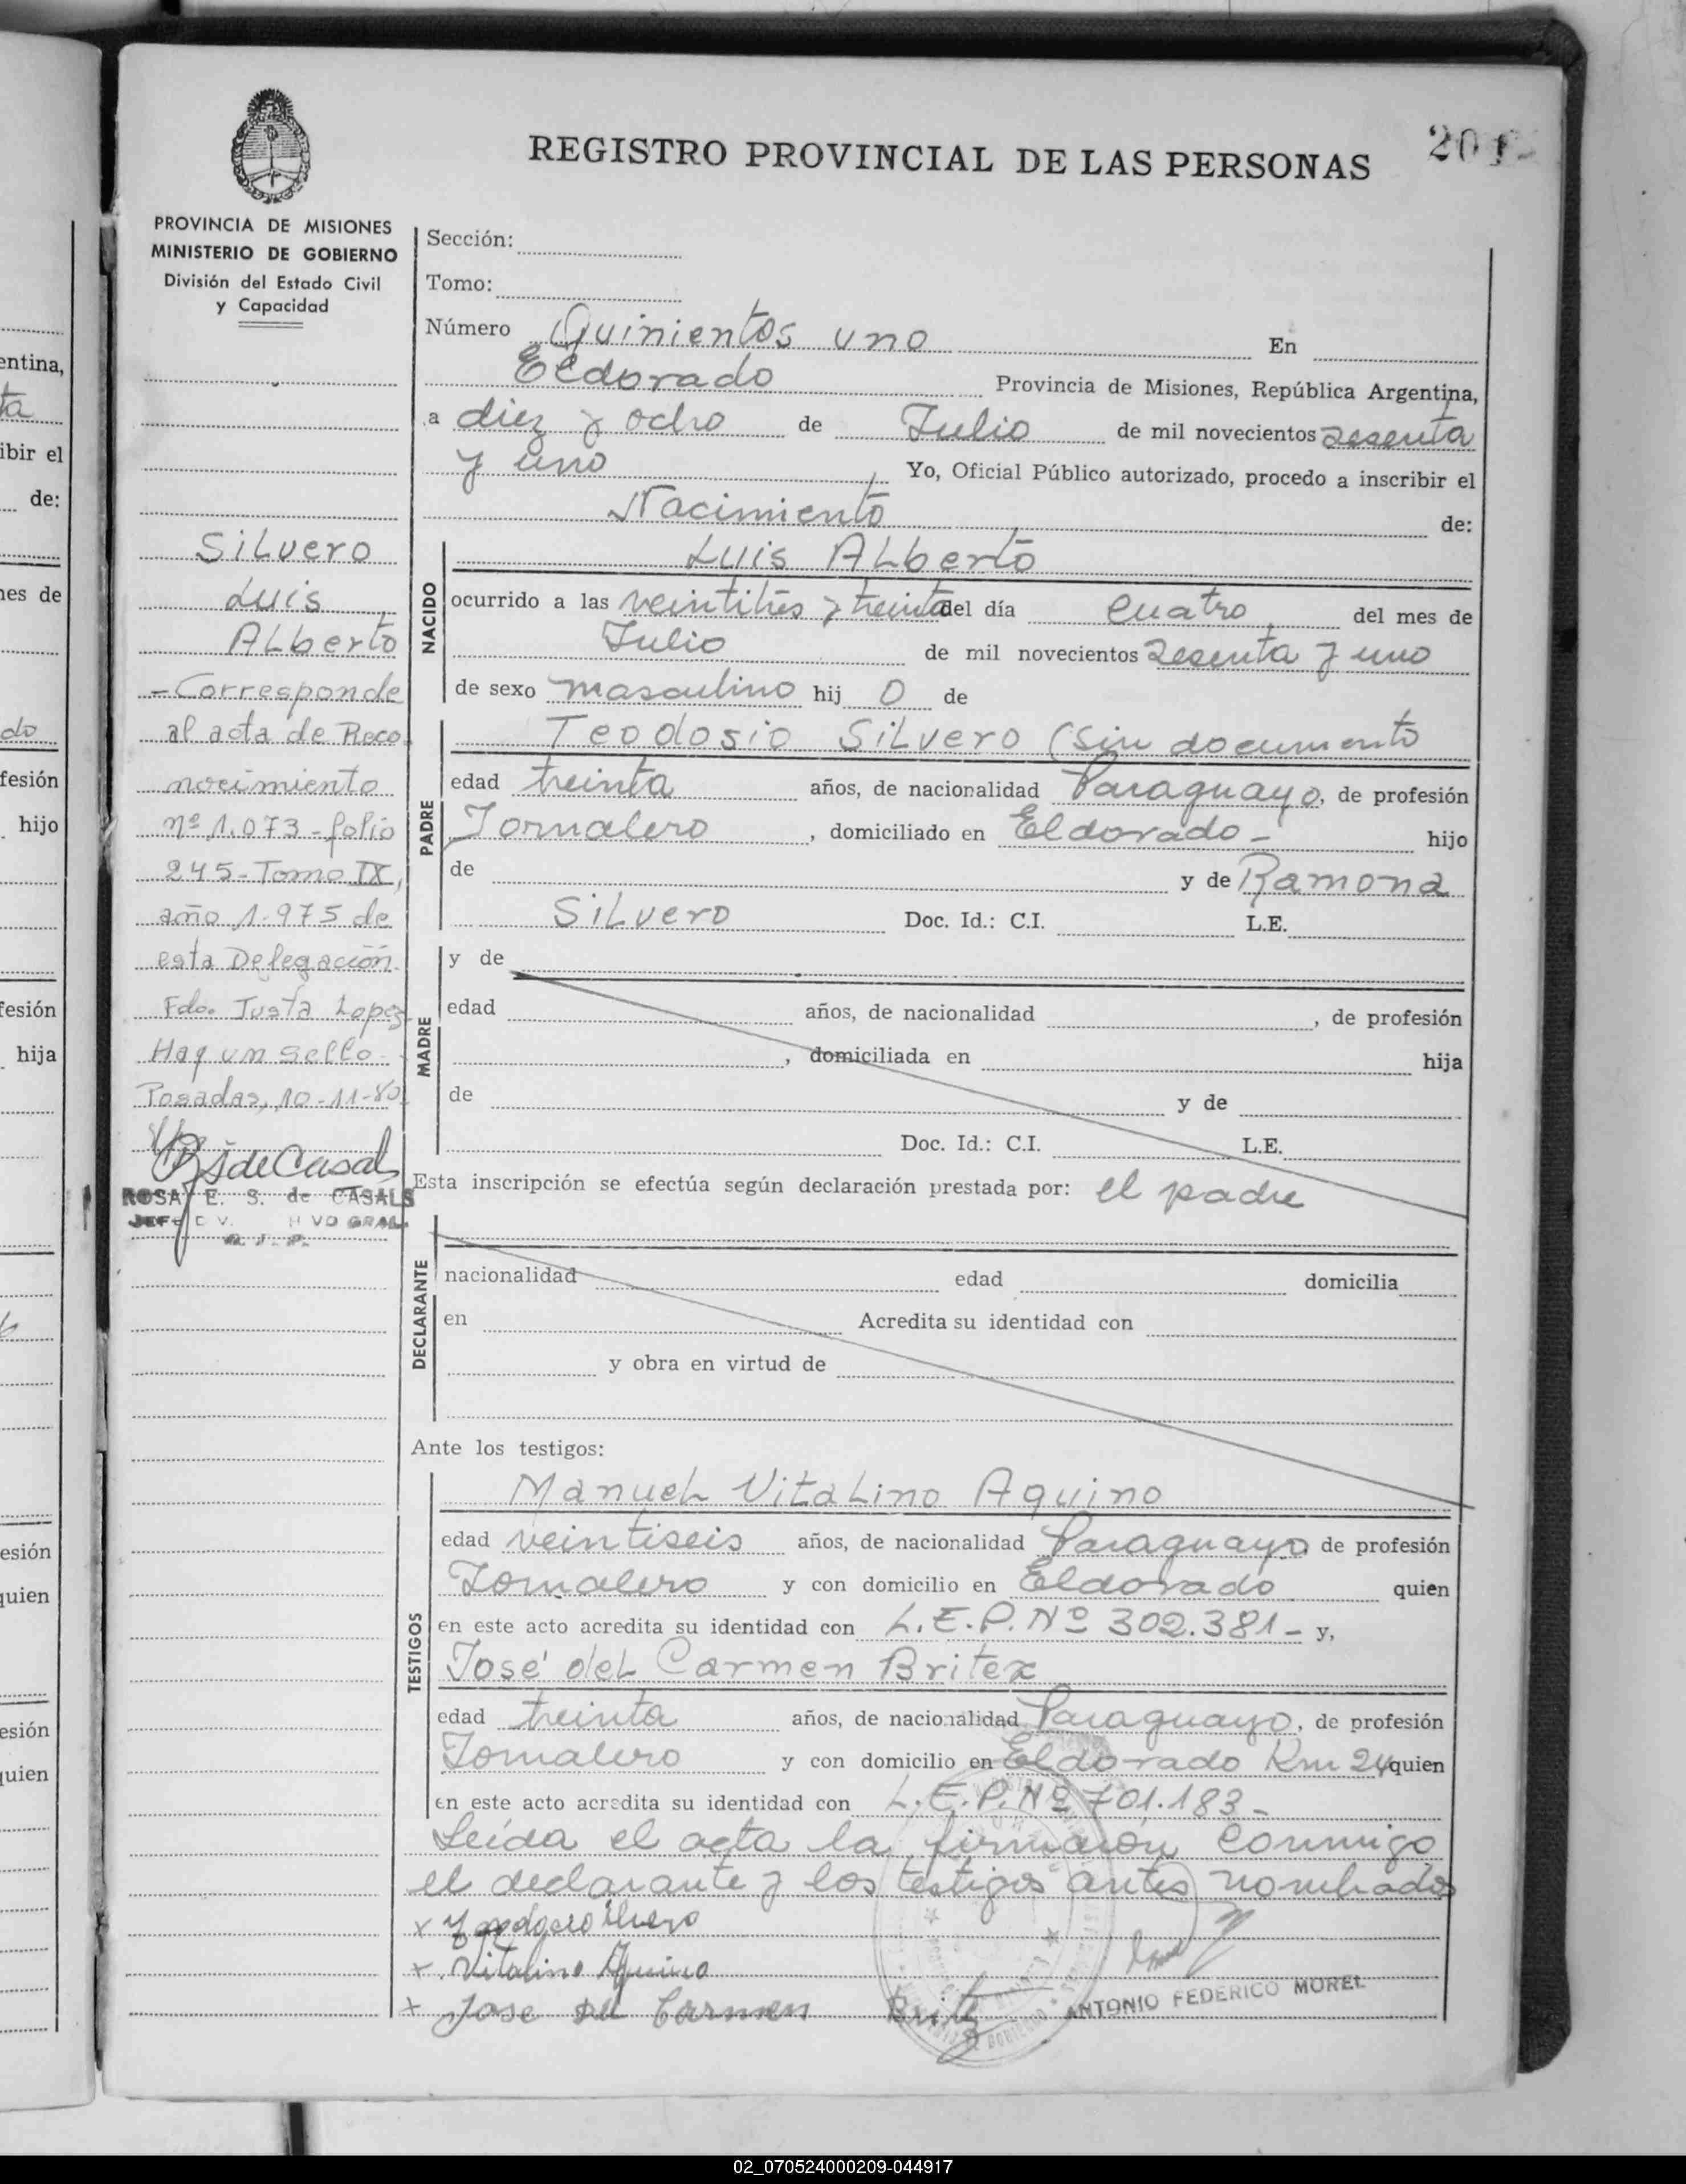 REGISTRO PROVINCIAL DE LAS PERSONAS
PROVINCIA DE MISIONES
MINISTERIO DE GOBIERNO
División del Estado Civil
y Capacidad
Silvero
Luis
Alberto
- Corresponde
al acta de Reco
nocimiento
nº 1.073 - folio
245 - Tomo IX,
año 1.975 de
esta Delegación.
Fdo. Justa Lopez
Hay un sello -
Posadas, 10-11-80
ROSA E. S. de CASALS
Sección:
Tomo:
Número Quinientos uno En
Eldorado Provincia de Misiones, República Argentina,
a diez y ocho de Julio de mil novecientos sesenta
y uno Yo, Oficial Público autorizado, procedo a inscribir el
Nacimiento de:
NACIDO
Luis Alberto
ocurrido a las veintitrés y treinta del día cuatro del mes de
Julio de mil novecientos sesenta y uno
de sexo masculino hij o de
PADRE
Teodosio Silvero (sin documento
edad treinta años, de nacionalidad Paraguayo, de profesión
Jornalero, domiciliado en Eldorado - hijo
de y de Ramona
Silvero Doc. Id.: C.I. L.E.
MADRE
y de
edad años, de nacionalidad , de profesión
, domiciliada en hija
de y de
Doc. Id.: C.I. L.E.
Esta inscripción se efectúa según declaración prestada por: el padre
DECLARANTE
nacionalidad edad domicilia
en Acredita su identidad con
y obra en virtud de
Ante los testigos:
TESTIGOS
Manuel Vitalino Aquino
edad veintiseis años, de nacionalidad Paraguayo de profesión
Jornalero y con domicilio en Eldorado quien
en este acto acredita su identidad con L.E.P. Nº 302.381 - y,
José del Carmen Britez
edad treinta años, de nacionalidad Paraguayo, de profesión
Jornalero y con domicilio en Eldorado Km 24 quien
en este acto acredita su identidad con L.E.P. Nº 701.183 -
Leída el acta la firmaron conmigo
el declarante y los testigos antes nombrados
x
x Vitalino Aquino
x Jose del Carmen Britez
ANTONIO FEDERICO MOREL
entina,
ta
ibir el
de:
nes de
do
fesión
hijo
fesión
hija
esión
quien
esión
quien
02_070524000209-044917